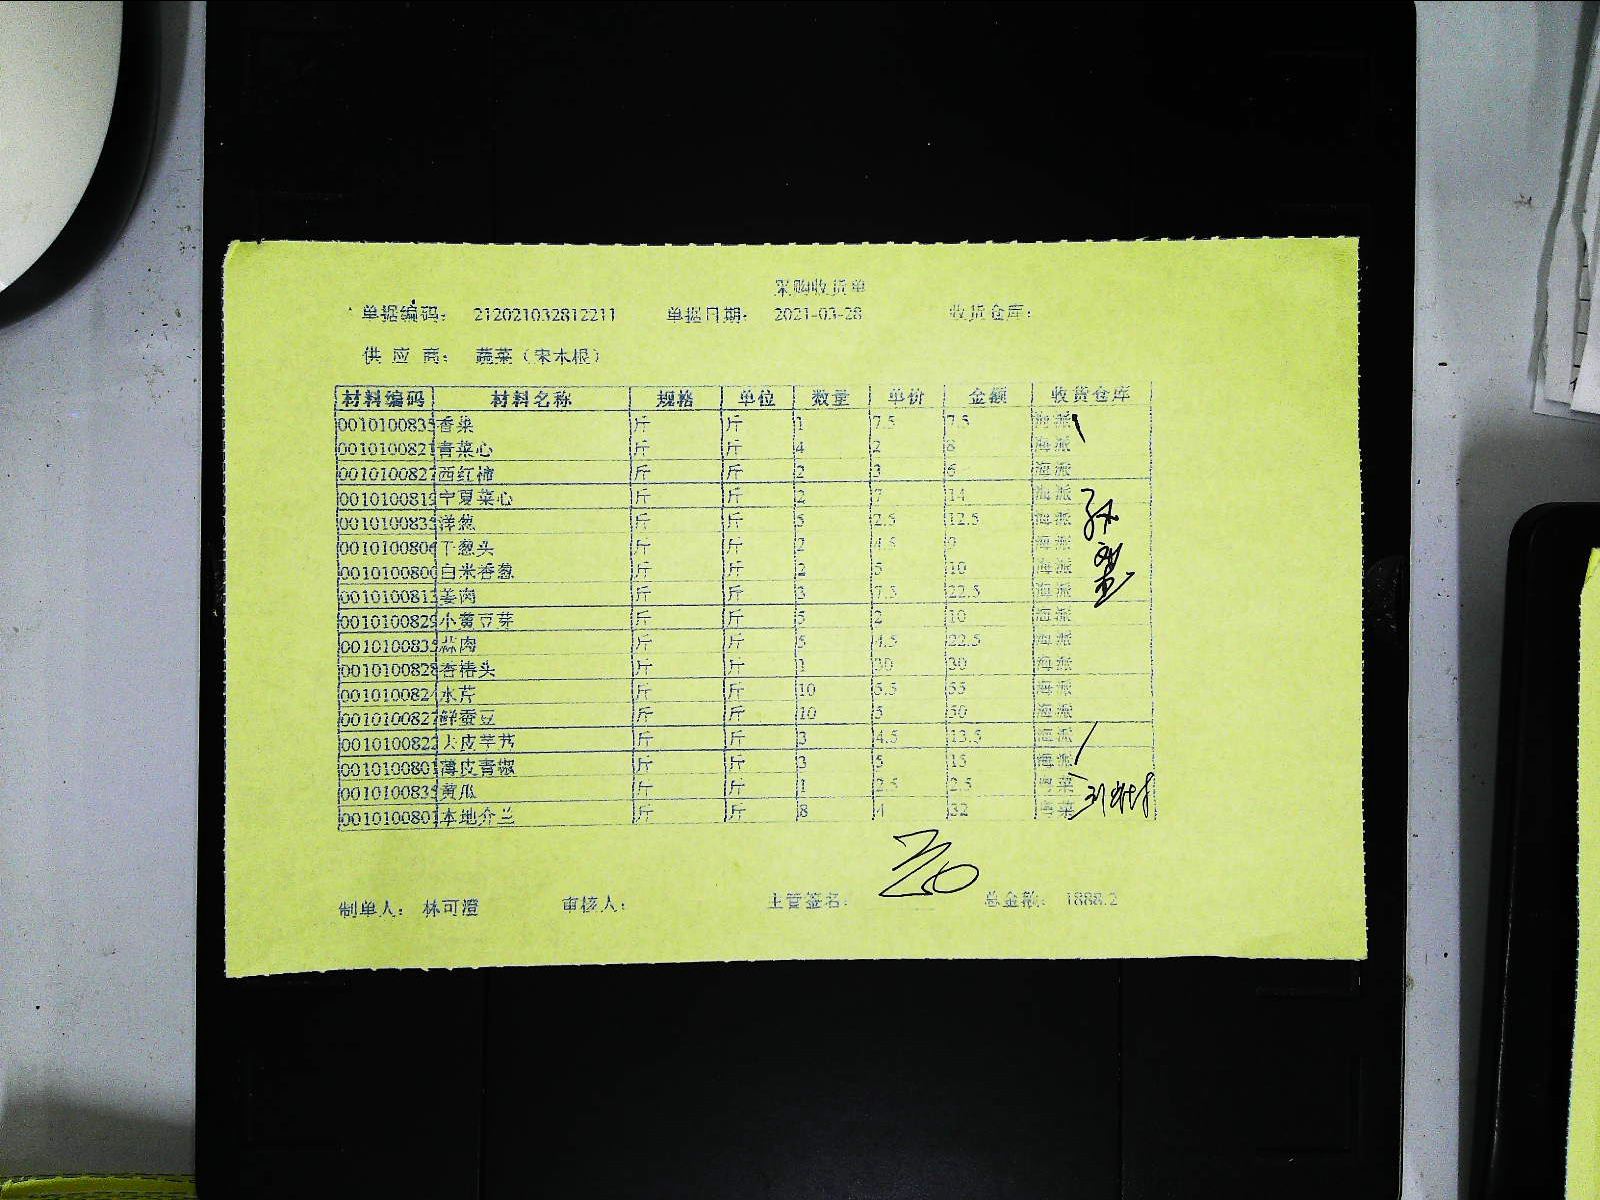 采购收货单
单据编码: 212021032812211 单据日期: 2021-03-28 收货仓库:
供应商: 蔬菜（宋木根）
材料编码 材料名称 规格 单位 数量 单价 金额 收货仓库
001010083 香菜 斤 斤 1 7.5 7.5 海派
001010082 青菜心 斤 斤 4 2 8 海派
001010082 西红柿 斤 斤 2 3 6 海派
001010081 宁夏菜心 斤 斤 2 7 14 海派
001010083 洋葱 斤 斤 5 2.5 12.5 海派
001010080 干葱头 斤 斤 2 4.5 9 海派
001010080 白米香葱 斤 斤 2 5 10 海派
001010081 姜肉 斤 斤 3 7.5 22.5 海派
001010082 小黄豆芽 斤 斤 5 2 10 海派
001010083 蒜肉 斤 斤 5 4.5 22.5 海派
001010082 香椿头 斤 斤 1 30 30 海派
001010082 水芹 斤 斤 10 5.5 55 海派
001010082 鲜蚕豆 斤 斤 10 5 50 海派
001010082 斤 斤 3 4.5 13.5 海派
001010080 薄皮青椒 斤 斤 3 5 15 海派
001010083 黄瓜 斤 斤 1 2.5 2.5 粤菜
001010080 本地介兰 斤 斤 8 4 32 粤菜
制单人: 林可澄 审核人: 主管签名: 总金额: 1888.2